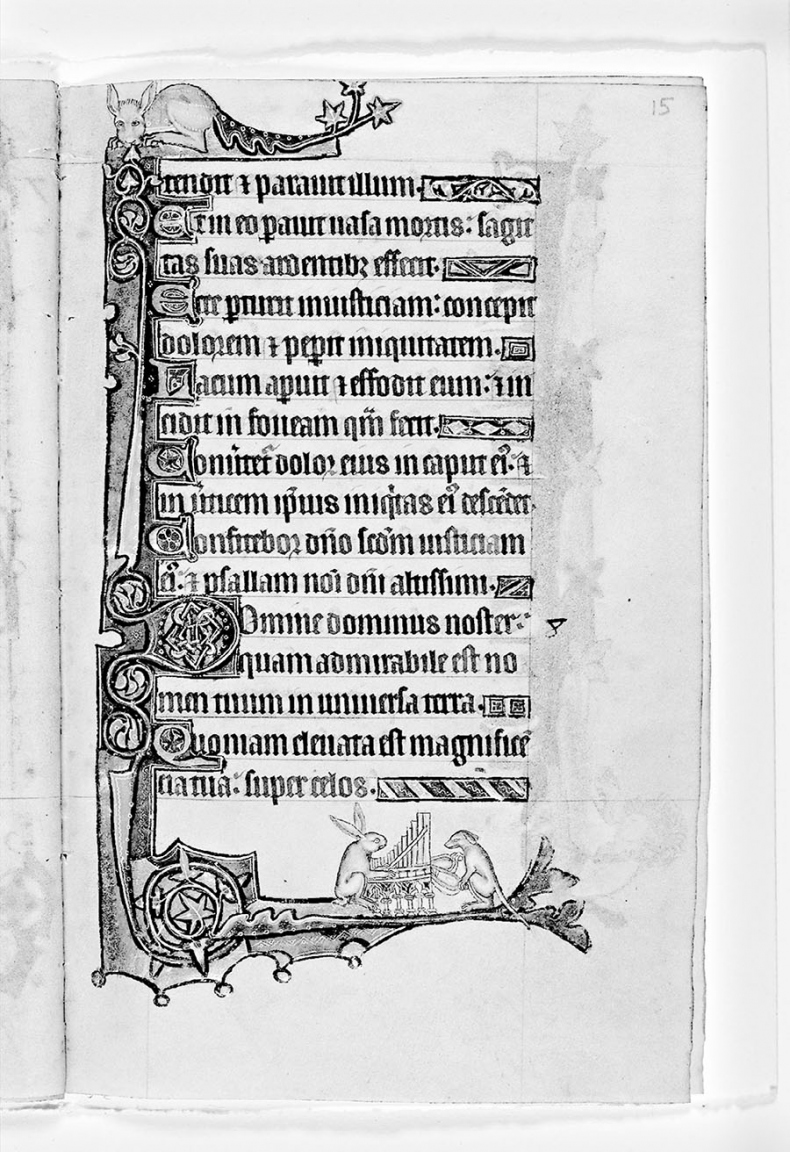 15
tendit ⁊ parauit illum.
Et in eo pauit uasa mortis: sagit
tas suas ardentibꝫ effecit.
Ecce ꝑturit iniusticiam: concepit
dolorem ⁊ peꝑit iniquitatem.
Lacum aꝑuit ⁊ effodit eum: ⁊ in
cidit in foueam qm̄ fecit.
Conūtet᷑ dolor eius in caput ei᷒: ⁊
in ūticem ip̄ius iniq̇tas ei᷒ descēdet.
Confitebor dn̄o scd̄m iusticiam
ei᷒: ⁊ psallam noī dn̄i altissimi.
Domine dominus noster:
quam admirabile est no
men tuum in uniuersa terra.
Quoniam eleuata est magnificē
cia tua: super celos.